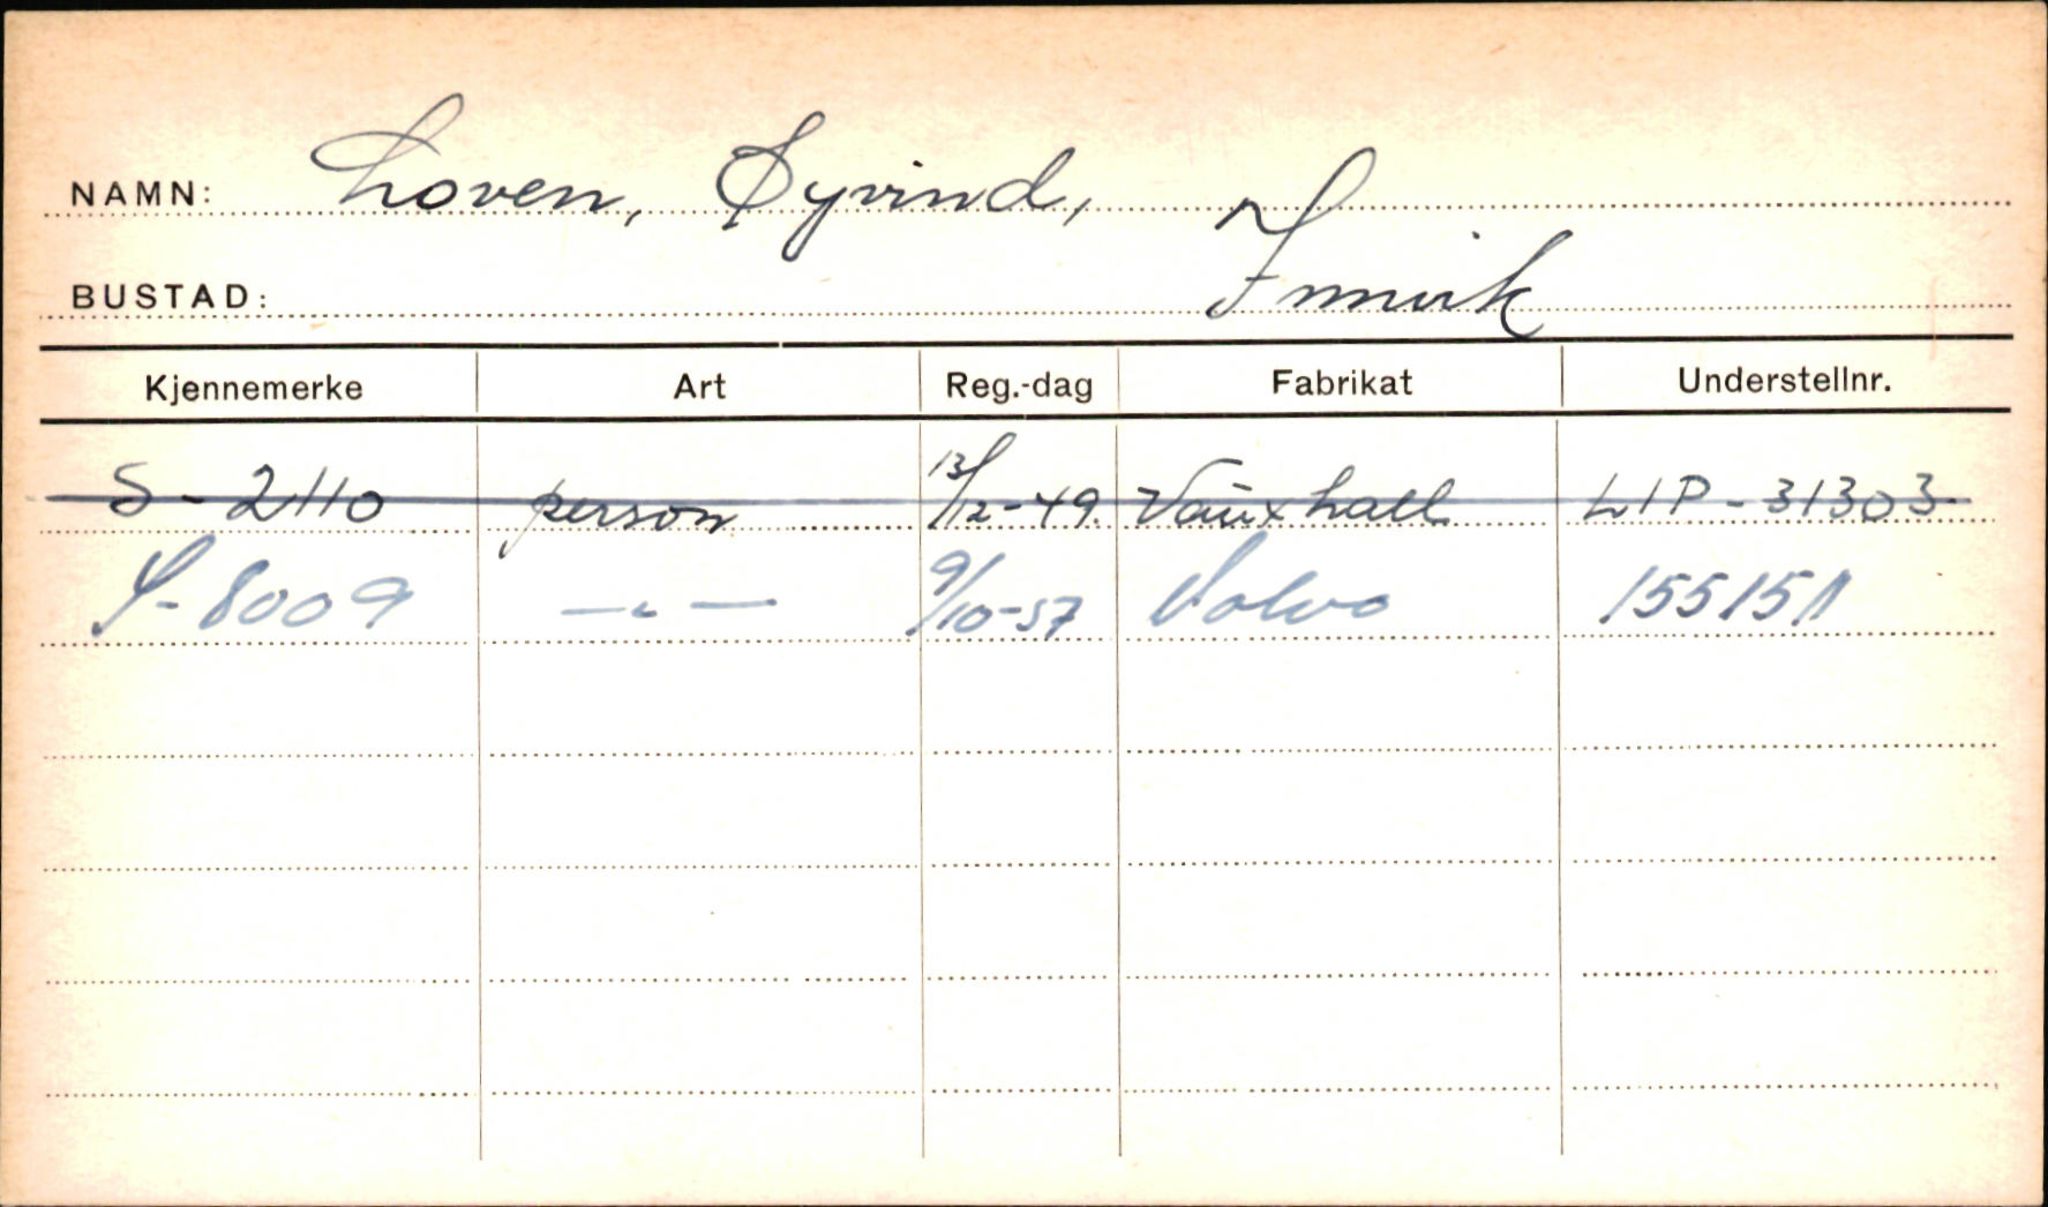 NAMN: Loven, Øyvind,
BUSTAD: Innvik
Kjennemerke Art Reg.-dag Fabrikat Understellnr.
S-2110 person 13/12-49. Vauxhall LIP-31303
S-8009 —"— 9/10-57 Volvo 155151